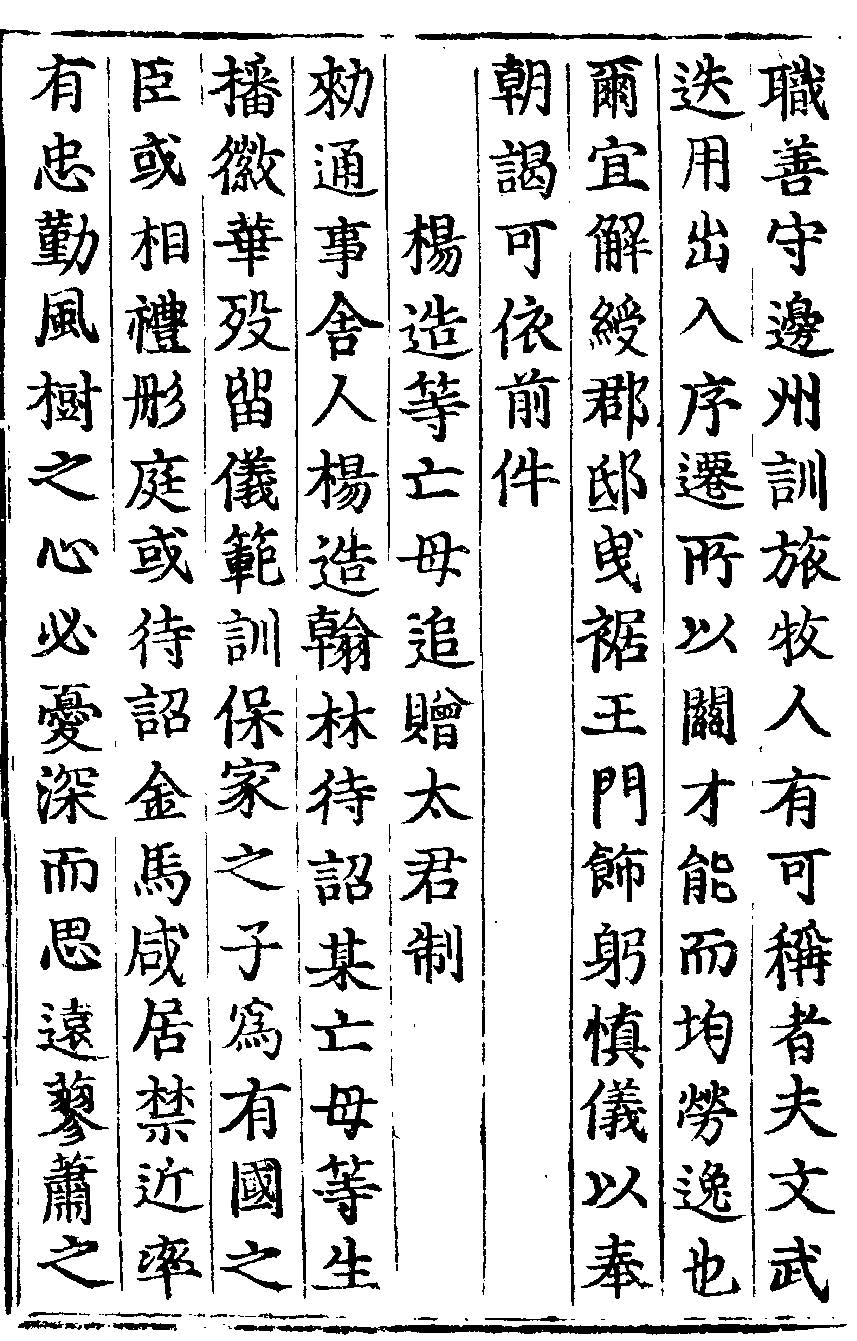 職善守邊州訓旅牧人有可稱者夫文武
迭用出入序遷所以關才能而均勞逸也
爾宜解綬郡邸曵裾王門飾躬慎儀以奉
朝謁可依前件
楊造等亡母追贈太君制
勑通事舍人楊造翰林待詔某亡母等生
播徽華歿留儀範訓保家之子爲有國之
臣或相禮彤庭或待詔金馬咸居禁近率
有忠勤風樹之心必憂深而思遠蓼蕭之